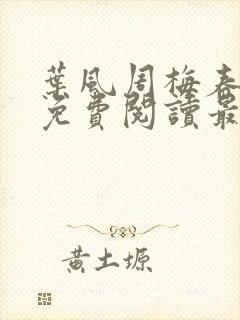 葉風周梅春
免費閱讀最
黃土塬